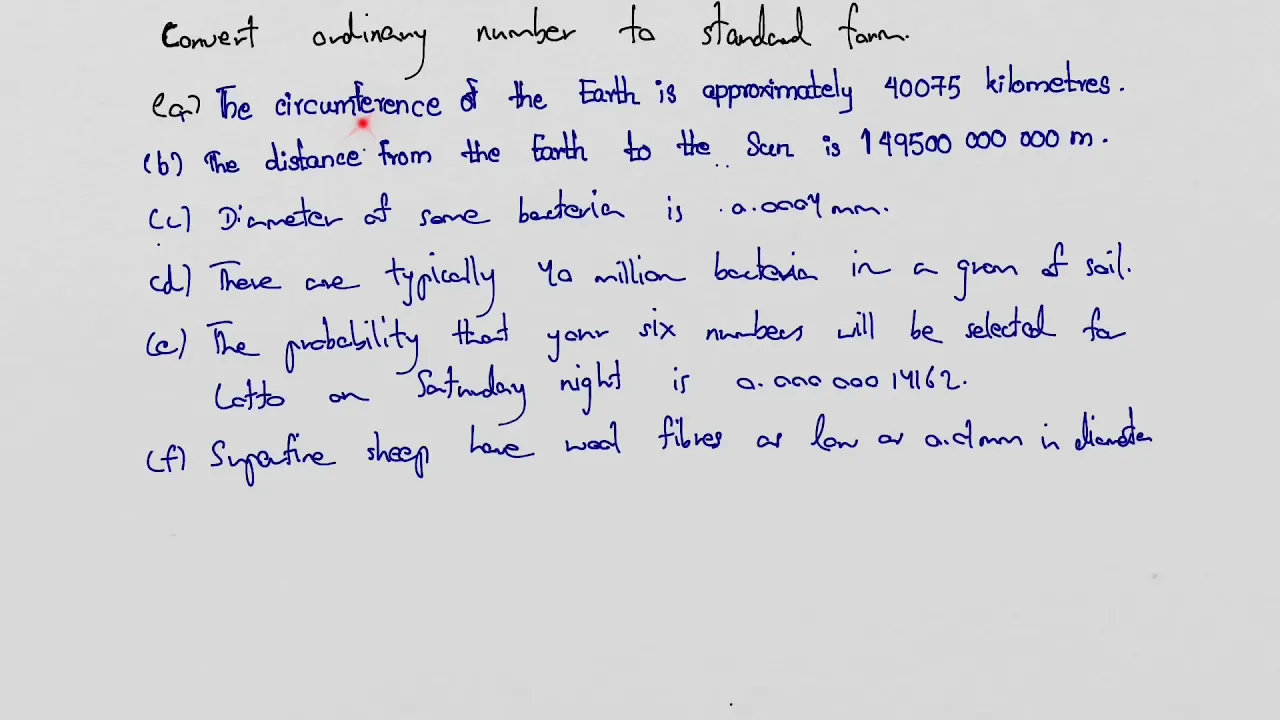 Convert ordinary number to standard form.
(a) The circumference of the Earth is approximately 40075 kilometres.
(b) The distance from the Earth to the Sun is 149500 000 000 m.
(c) Diameter of some bacteria is 0.0004 mm.
(d) There are typically 40 million bacteria in a gram of soil.
(e) The probability that your six numbers will be selected for
Lotto on Saturday night is 0.000 000 14162.
(f) Superfine sheep have wool fibres as low as mm in diameter